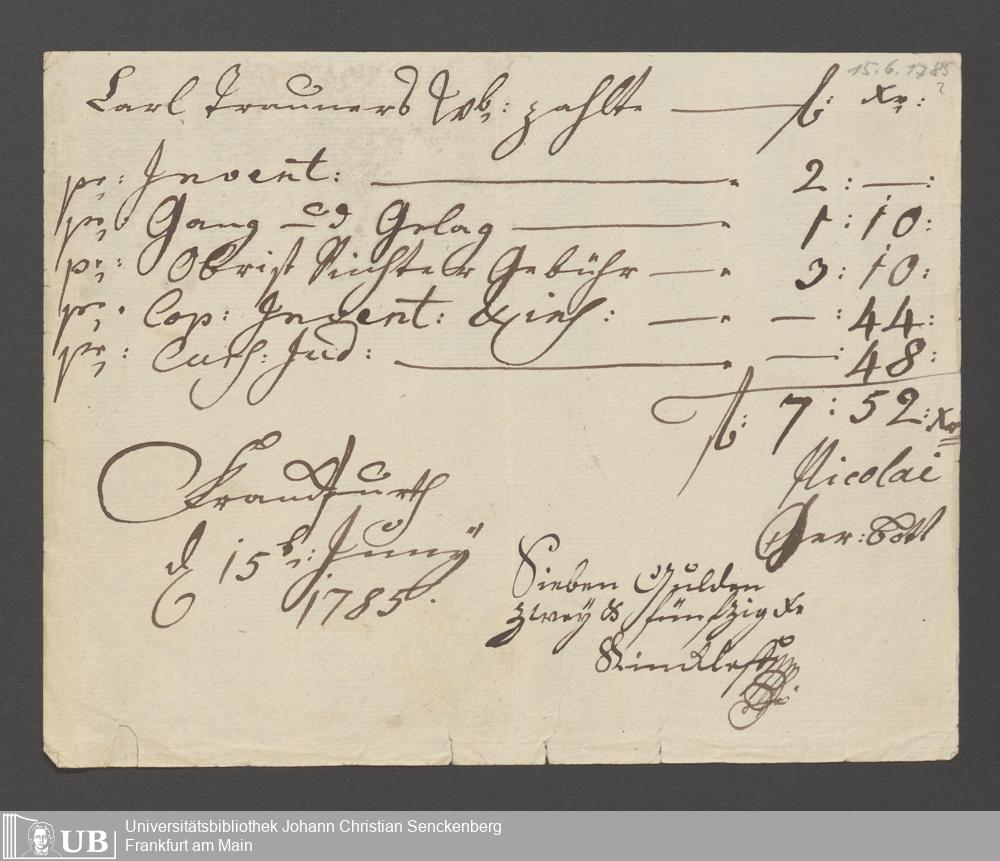 15.6.1785
?
Carl Trauners Wb: zahlt f: Xr:
pr: Invent: 2: —:
pr: Gang und Gelag 1: 10:
pr: Obrist Richter Gebühr 3: 10:
pr: Cop: Invent: — : 44:
pr: Jud: — : 48:
f: 7: 52: Xr
Nicolai
Ger: Bott
Franckfurth
d 15t: Juny
1785.
Sieben Gulden
zwey & fünfzig Xr
UB
Universitätsbibliothek Johann Christian Senckenberg
Frankfurt am Main